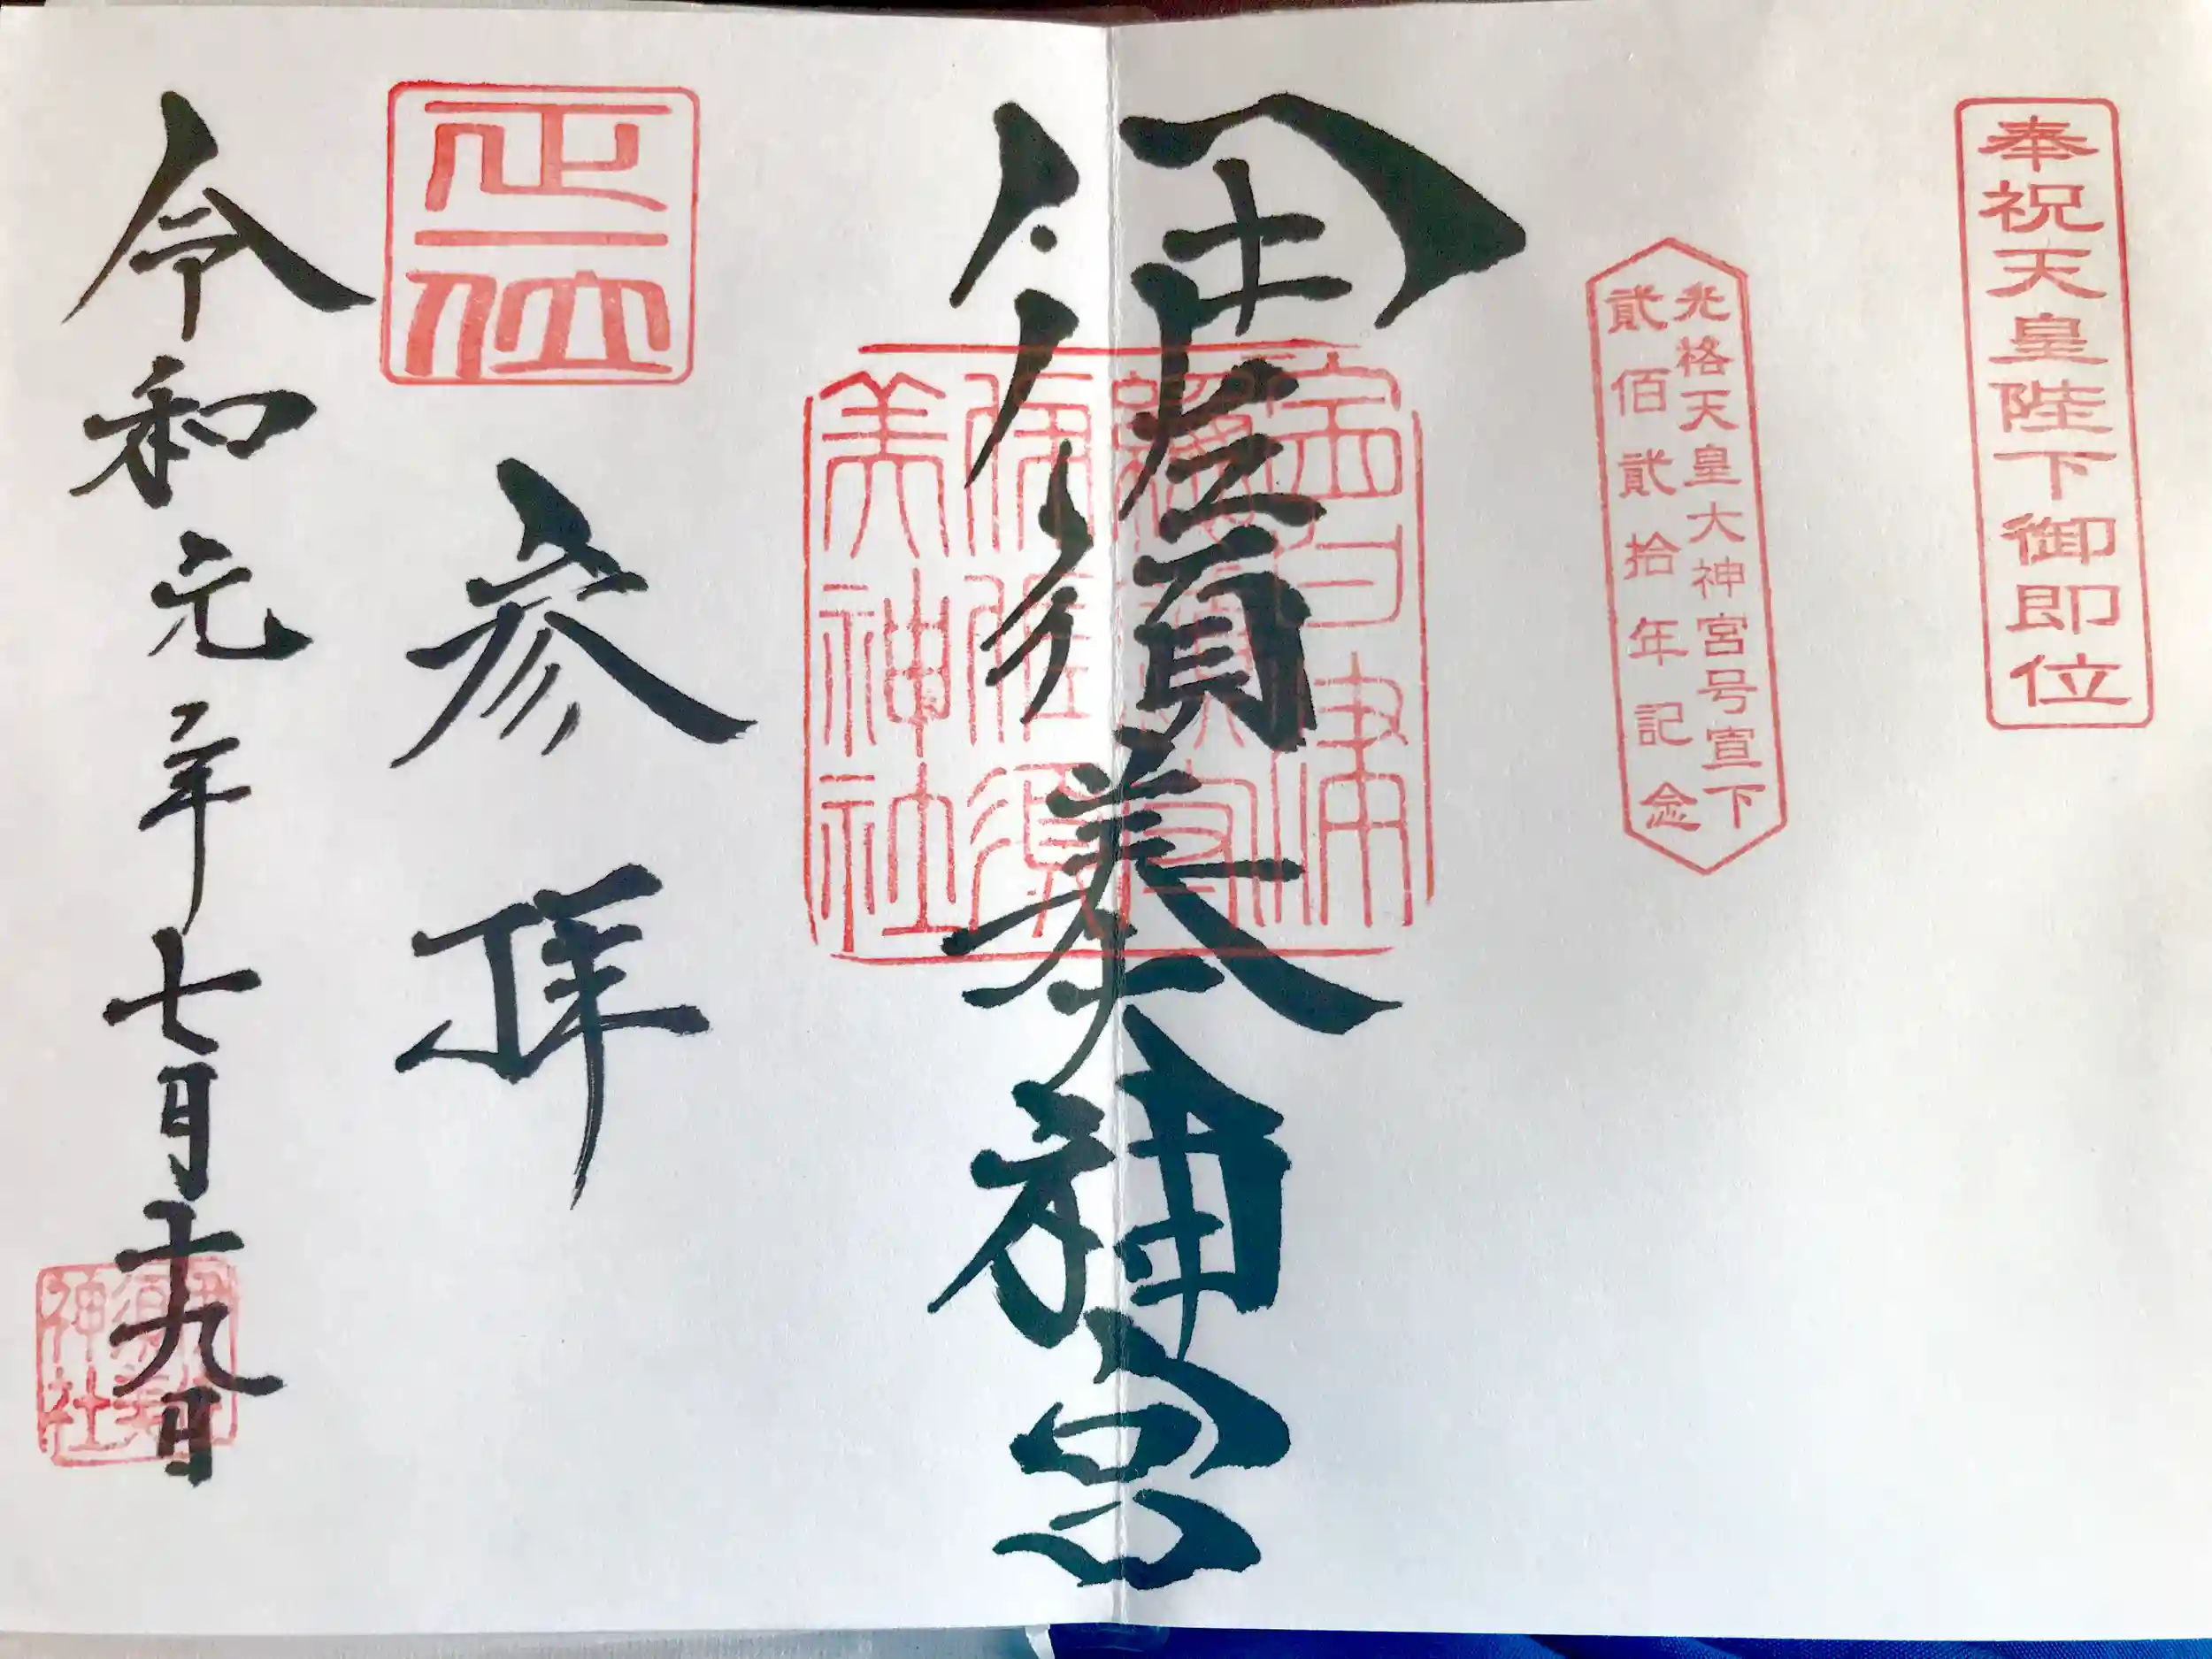 奉祝天皇陛下御即位
光格天皇大神宮号宣下
貳佰貳拾年記念
伊佐須美神宮
伊佐須
美神社
正一位
参拝
令和元年七月十九日
伊佐
須美
神社